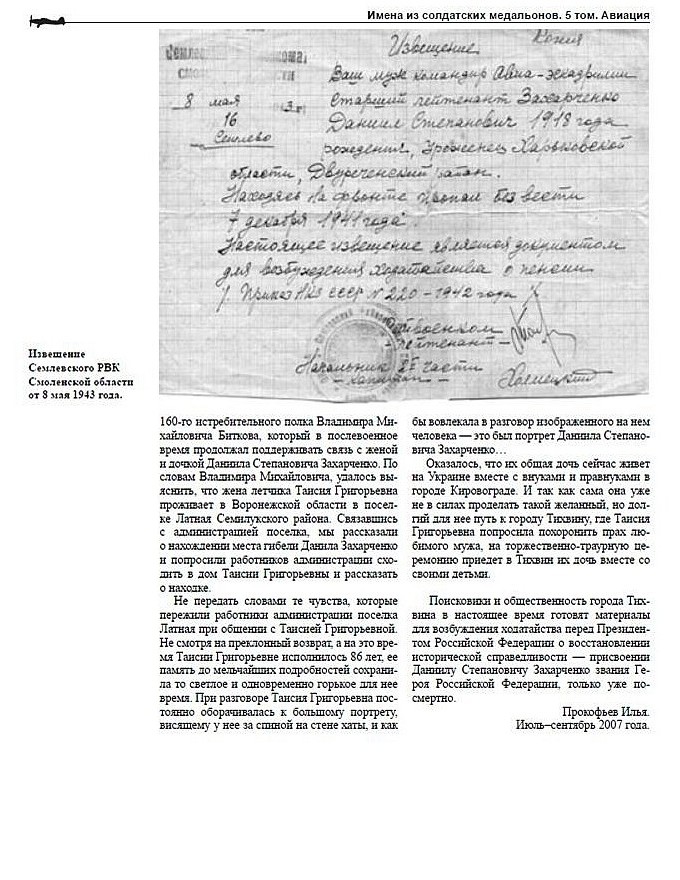 Имена из солдатских медальонов. 5 том. Авиация
Извещение
Копия
8 мая
16
Семлево
Ваш муж командир Авиа-эскадрилии
Старший лейтенант Захарченко
Даниил Степанович 1918 года
рождения, Уроженец Харьковской
области, Двуреченский район.
Находясь на фронте пропал без вести
7 декабря 1941 года.
Настоящее извещение является документом
для возбуждения ходатайства о пенсии
/. Приказ НКО СССР № 220-1942 года /.
Райвоенком
- лейтенант -
Начальник 2й части
- капитан -
Хомецкий
Извешение
Семлевского РВК
Смоленской области
от 8 мая 1943 года.
160-го истребительного полка Владимира Ми-
хайловича Биткова, который в послевоенное
время продолжал поддерживать связь с женой
и дочкой Даниила Степановича Захарченко. По
словам Владимира Михайловича, удалось вы-
яснить, что жена летчика Таисия Григорьевна
проживает в Воронежской области в посел-
ке Латная Семилукского района. Связавшись
с администрацией поселка, мы рассказали
о нахождении места гибели Данила Захарченко
и попросили работников администрации схо-
дить в дом Таисии Григорьевны и рассказать
о находке.
Не передать словами те чувства, которые
пережили работники администрации поселка
Латная при общении с Таисией Григорьевной.
Не смотря на преклонный возврат, а на это вре-
мя Таисии Григорьевне исполнилось 86 лет, ее
память до мельчайших подробностей сохрани-
ла то светлое и одновременно горькое для нее
время. При разговоре Таисия Григорьевна пос-
тоянно оборачивалась к большому портрету,
висящему у нее за спиной на стене хаты, и как
бы вовлекала в разговор изображенного на нем
человека — это был портрет Даниила Степано-
вича Захарченко…
Оказалось, что их общая дочь сейчас живет
на Украине вместе с внуками и правнуками в
городе Кировограде. И так как сама она уже
не в силах проделать такой желанный, но дол-
гий для нее путь к городу Тихвину, где Таисия
Григорьевна попросила похоронить прах лю-
бимого мужа, на торжественно-траурную це-
ремонию приедет в Тихвин их дочь вместе со
своими детьми.
Поисковики и общественность города Тих-
вина в настоящее время готовят материалы
для возбуждения ходатайства перед Президен-
том Российской Федерации о восстановлении
исторической справедливости — присвоении
Даниилу Степановичу Захарченко звания Ге-
роя Российской Федерации, только уже по-
смертно.
Прокофьев Илья.
Июль–сентябрь 2007 года.